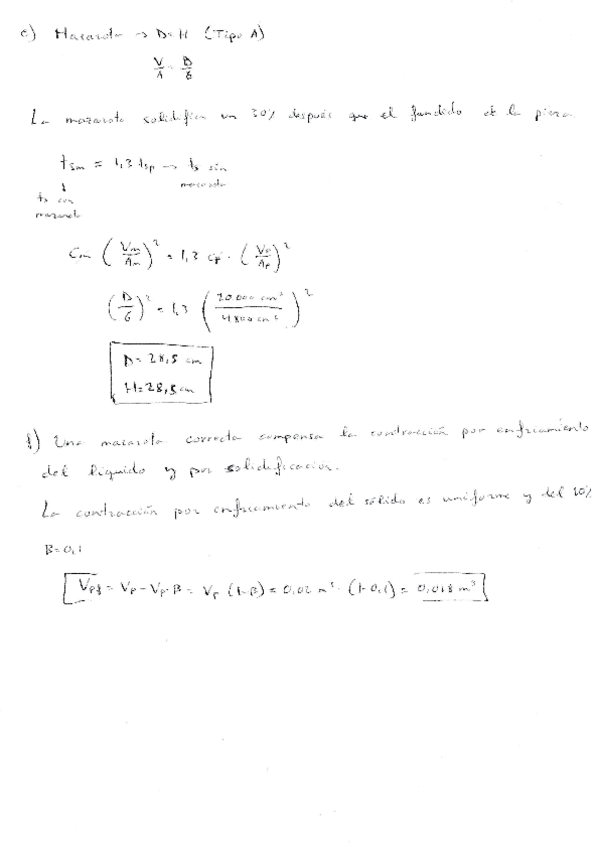 e) Mazarota → D=H (Tipo A)
V/A = D/6
La mazarota solidifica un 30% después que el fundido de la pieza
tsm = 1,3 tsp → ts sin mazarota
↓
ts con mazarota
Cm (Vm/Am)² = 1,3 Cp · (Vp/Ap)²
(D/6)² = 1,3 (20000 cm³ / 4800 cm²)²
D = 28,5 cm
H = 28,5 cm
f) Una mazarota correcta compensa la contracción por enfriamiento
del líquido y por solidificación.
La contracción por enfriamiento del sólido es uniforme y del 10%
B = 0,1
Vpf = Vp - Vp·B = Vp (1-B) = 0,02 m³ · (1-0,1) = 0,018 m³